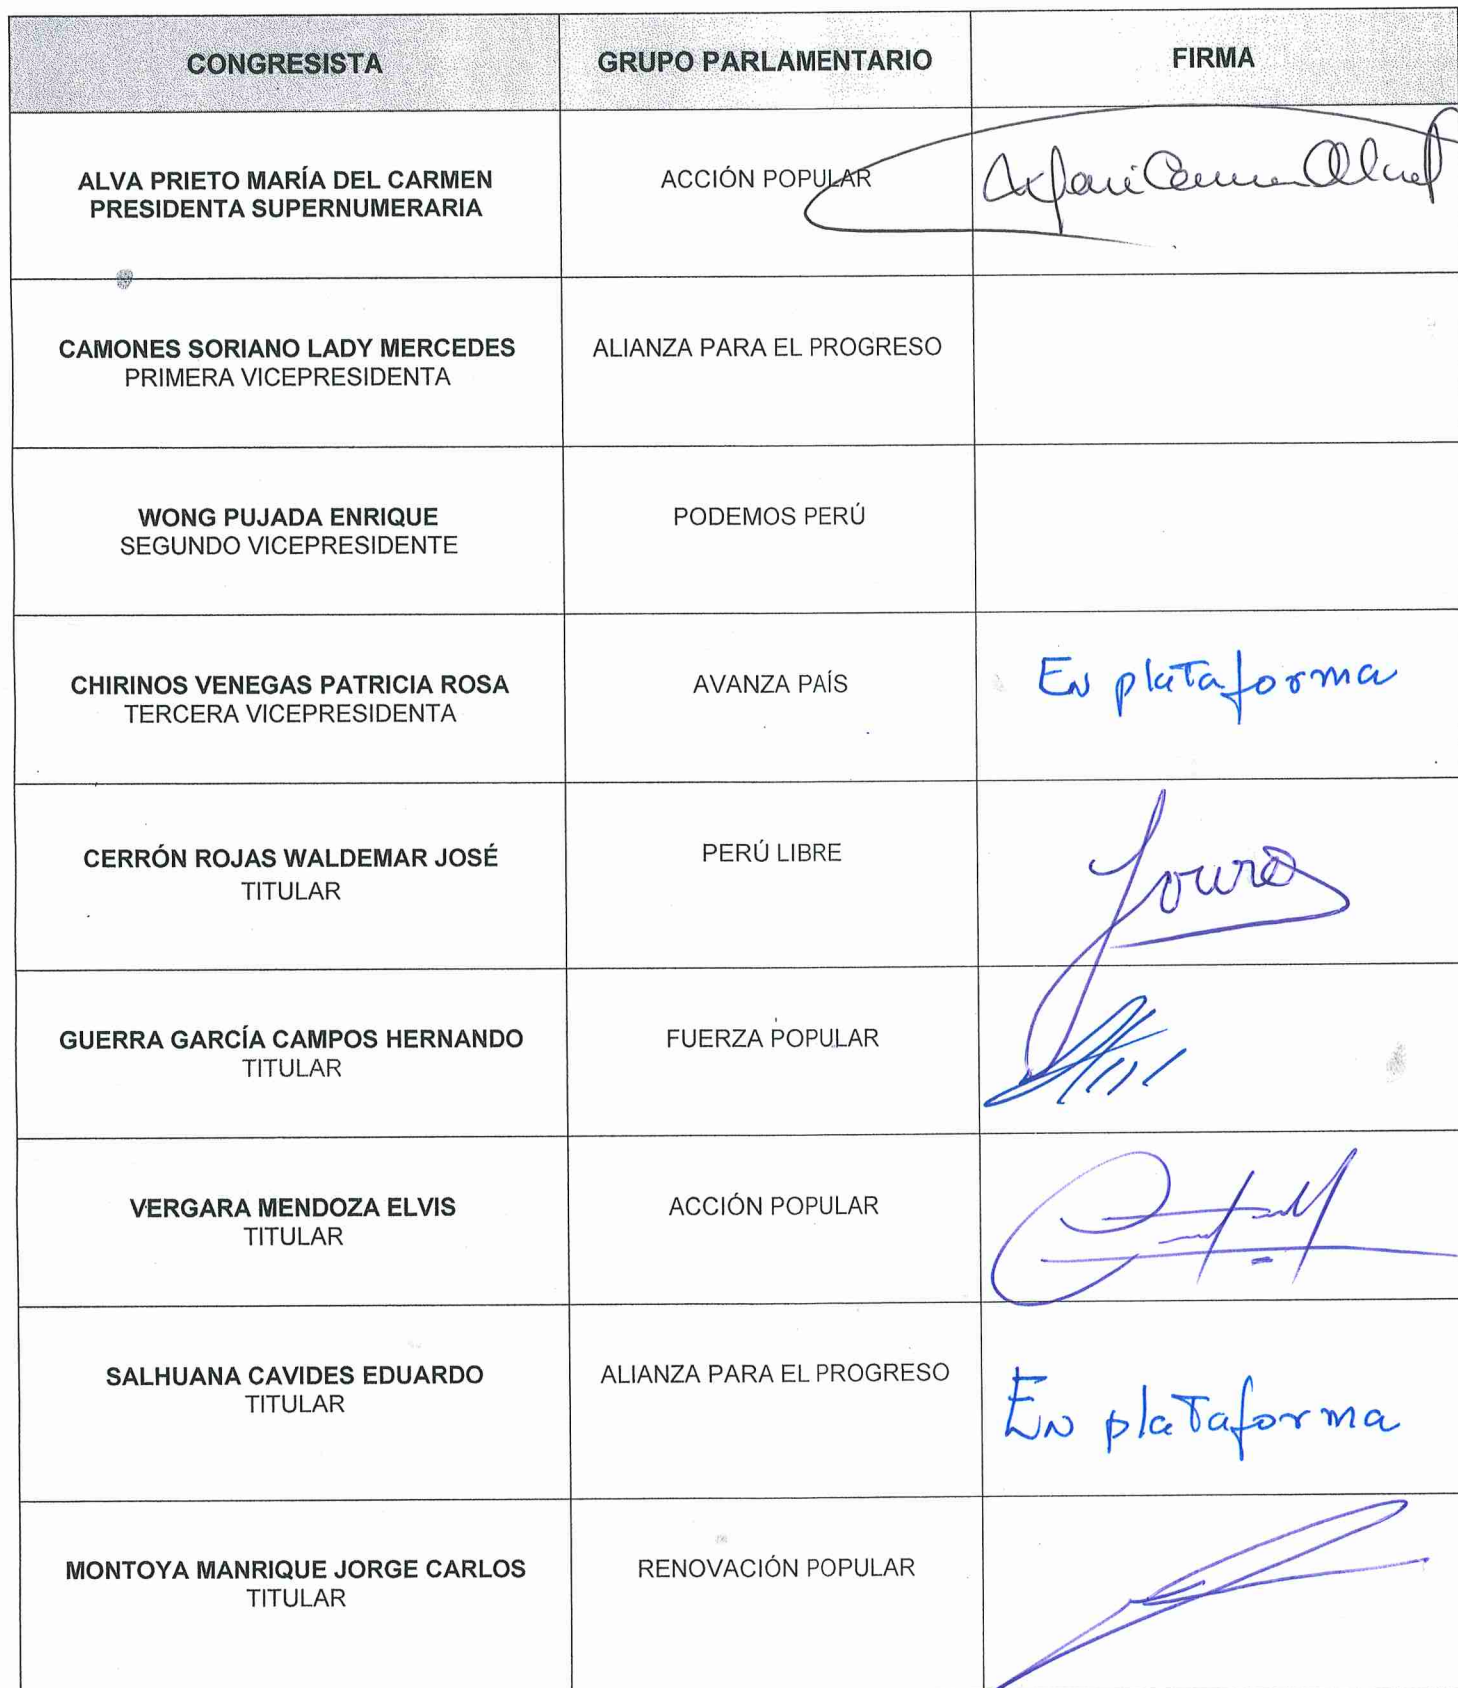 CONGRESISTA
GRUPO PARLAMENTARIO
FIRMA
ALVA PRIETO MARÍA DEL CARMEN
PRESIDENTA SUPERNUMERARIA
ACCIÓN POPULAR
CAMONES SORIANO LADY MERCEDES
PRIMERA VICEPRESIDENTA
ALIANZA PARA EL PROGRESO
WONG PUJADA ENRIQUE
SEGUNDO VICEPRESIDENTE
PODEMOS PERÚ
CHIRINOS VENEGAS PATRICIA ROSA
TERCERA VICEPRESIDENTA
AVANZA PAÍS
En plataforma
CERRÓN ROJAS WALDEMAR JOSÉ
TITULAR
PERÚ LIBRE
GUERRA GARCÍA CAMPOS HERNANDO
TITULAR
FUERZA POPULAR
VERGARA MENDOZA ELVIS
TITULAR
ACCIÓN POPULAR
SALHUANA CAVIDES EDUARDO
TITULAR
ALIANZA PARA EL PROGRESO
En plataforma
MONTOYA MANRIQUE JORGE CARLOS
TITULAR
RENOVACIÓN POPULAR